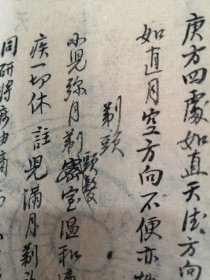 庚方四處如直天德方向
如直月空方向不便亦
剃頭
小兒弥月剃頭髮室温和
疾一切休註兒滿月剃
同研